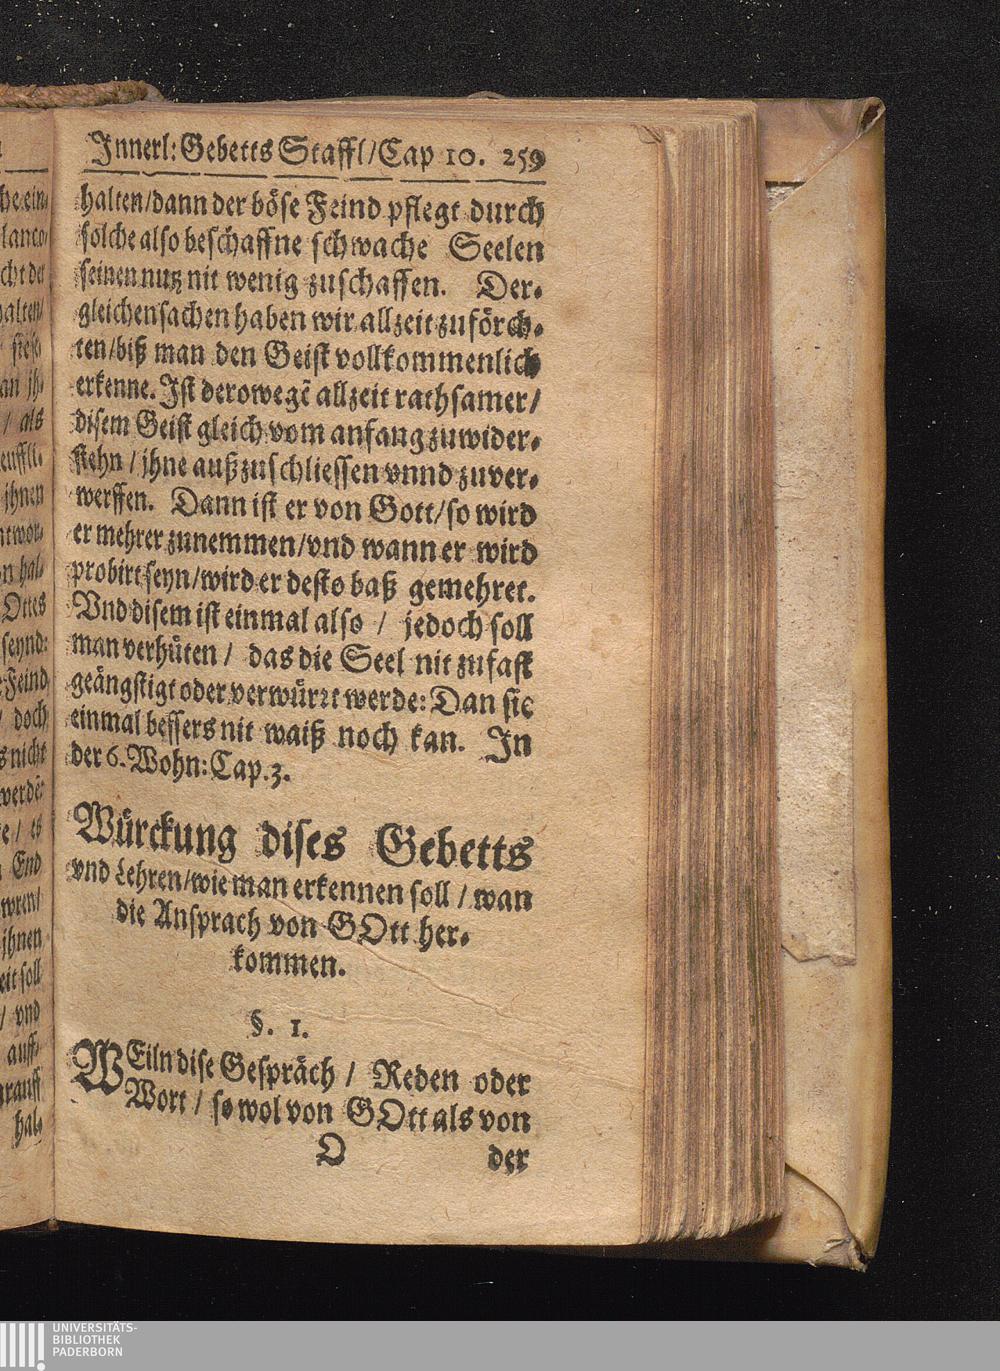 Innerl: Gebetts Staffl/Cap 10. 259
halten/dann der böse Feind pflegt durch
solche also beschaffne schwache Seelen
seinen nutz nit wenig zuschaffen. Der-
gleichen sachen haben wir allzeit zuförch-
ten/biß man den Geist vollkommenlich
erkenne. Ist derowegẽ allzeit rathsamer/
disem Geist gleich vom anfang zuwider-
stehn / jhne außzuschliessen vnnd zuver-
werffen. Dann ist er von Gott/so wird
er mehrer zunemmen/vnd wann er wird
probirt seyn/wird er desto baß gemehret.
Vnd disem ist einmal also / jedoch soll
man verhüten / das die Seel nit zufast
geängstigt oder verwürrt werde: Dan sie
einmal bessers nit waiß noch kan. In
der 6. Wohn: Cap. 3.
Würckung dises Gebetts
vnd Lehren/wie man erkennen soll / wan
die Ansprach von GOtt her-
kommen.
§. 1.
WEiln dise Gespräch / Reden oder
Wort / so wol von GOtt als von
O der
he ein-
lanco-
cht der
halten/
an jh-
/ als
euffli-
jhnen
ntwor-
n hal-
Ottes
seynd:
Feind
/ doch
s nicht
werdẽ:
e / es
End
wren/
jhnen
eit soll
/ vnd
auff-
grauff
hal-
UNIVERSITÄTS-
BIBLIOTHEK
PADERBORN